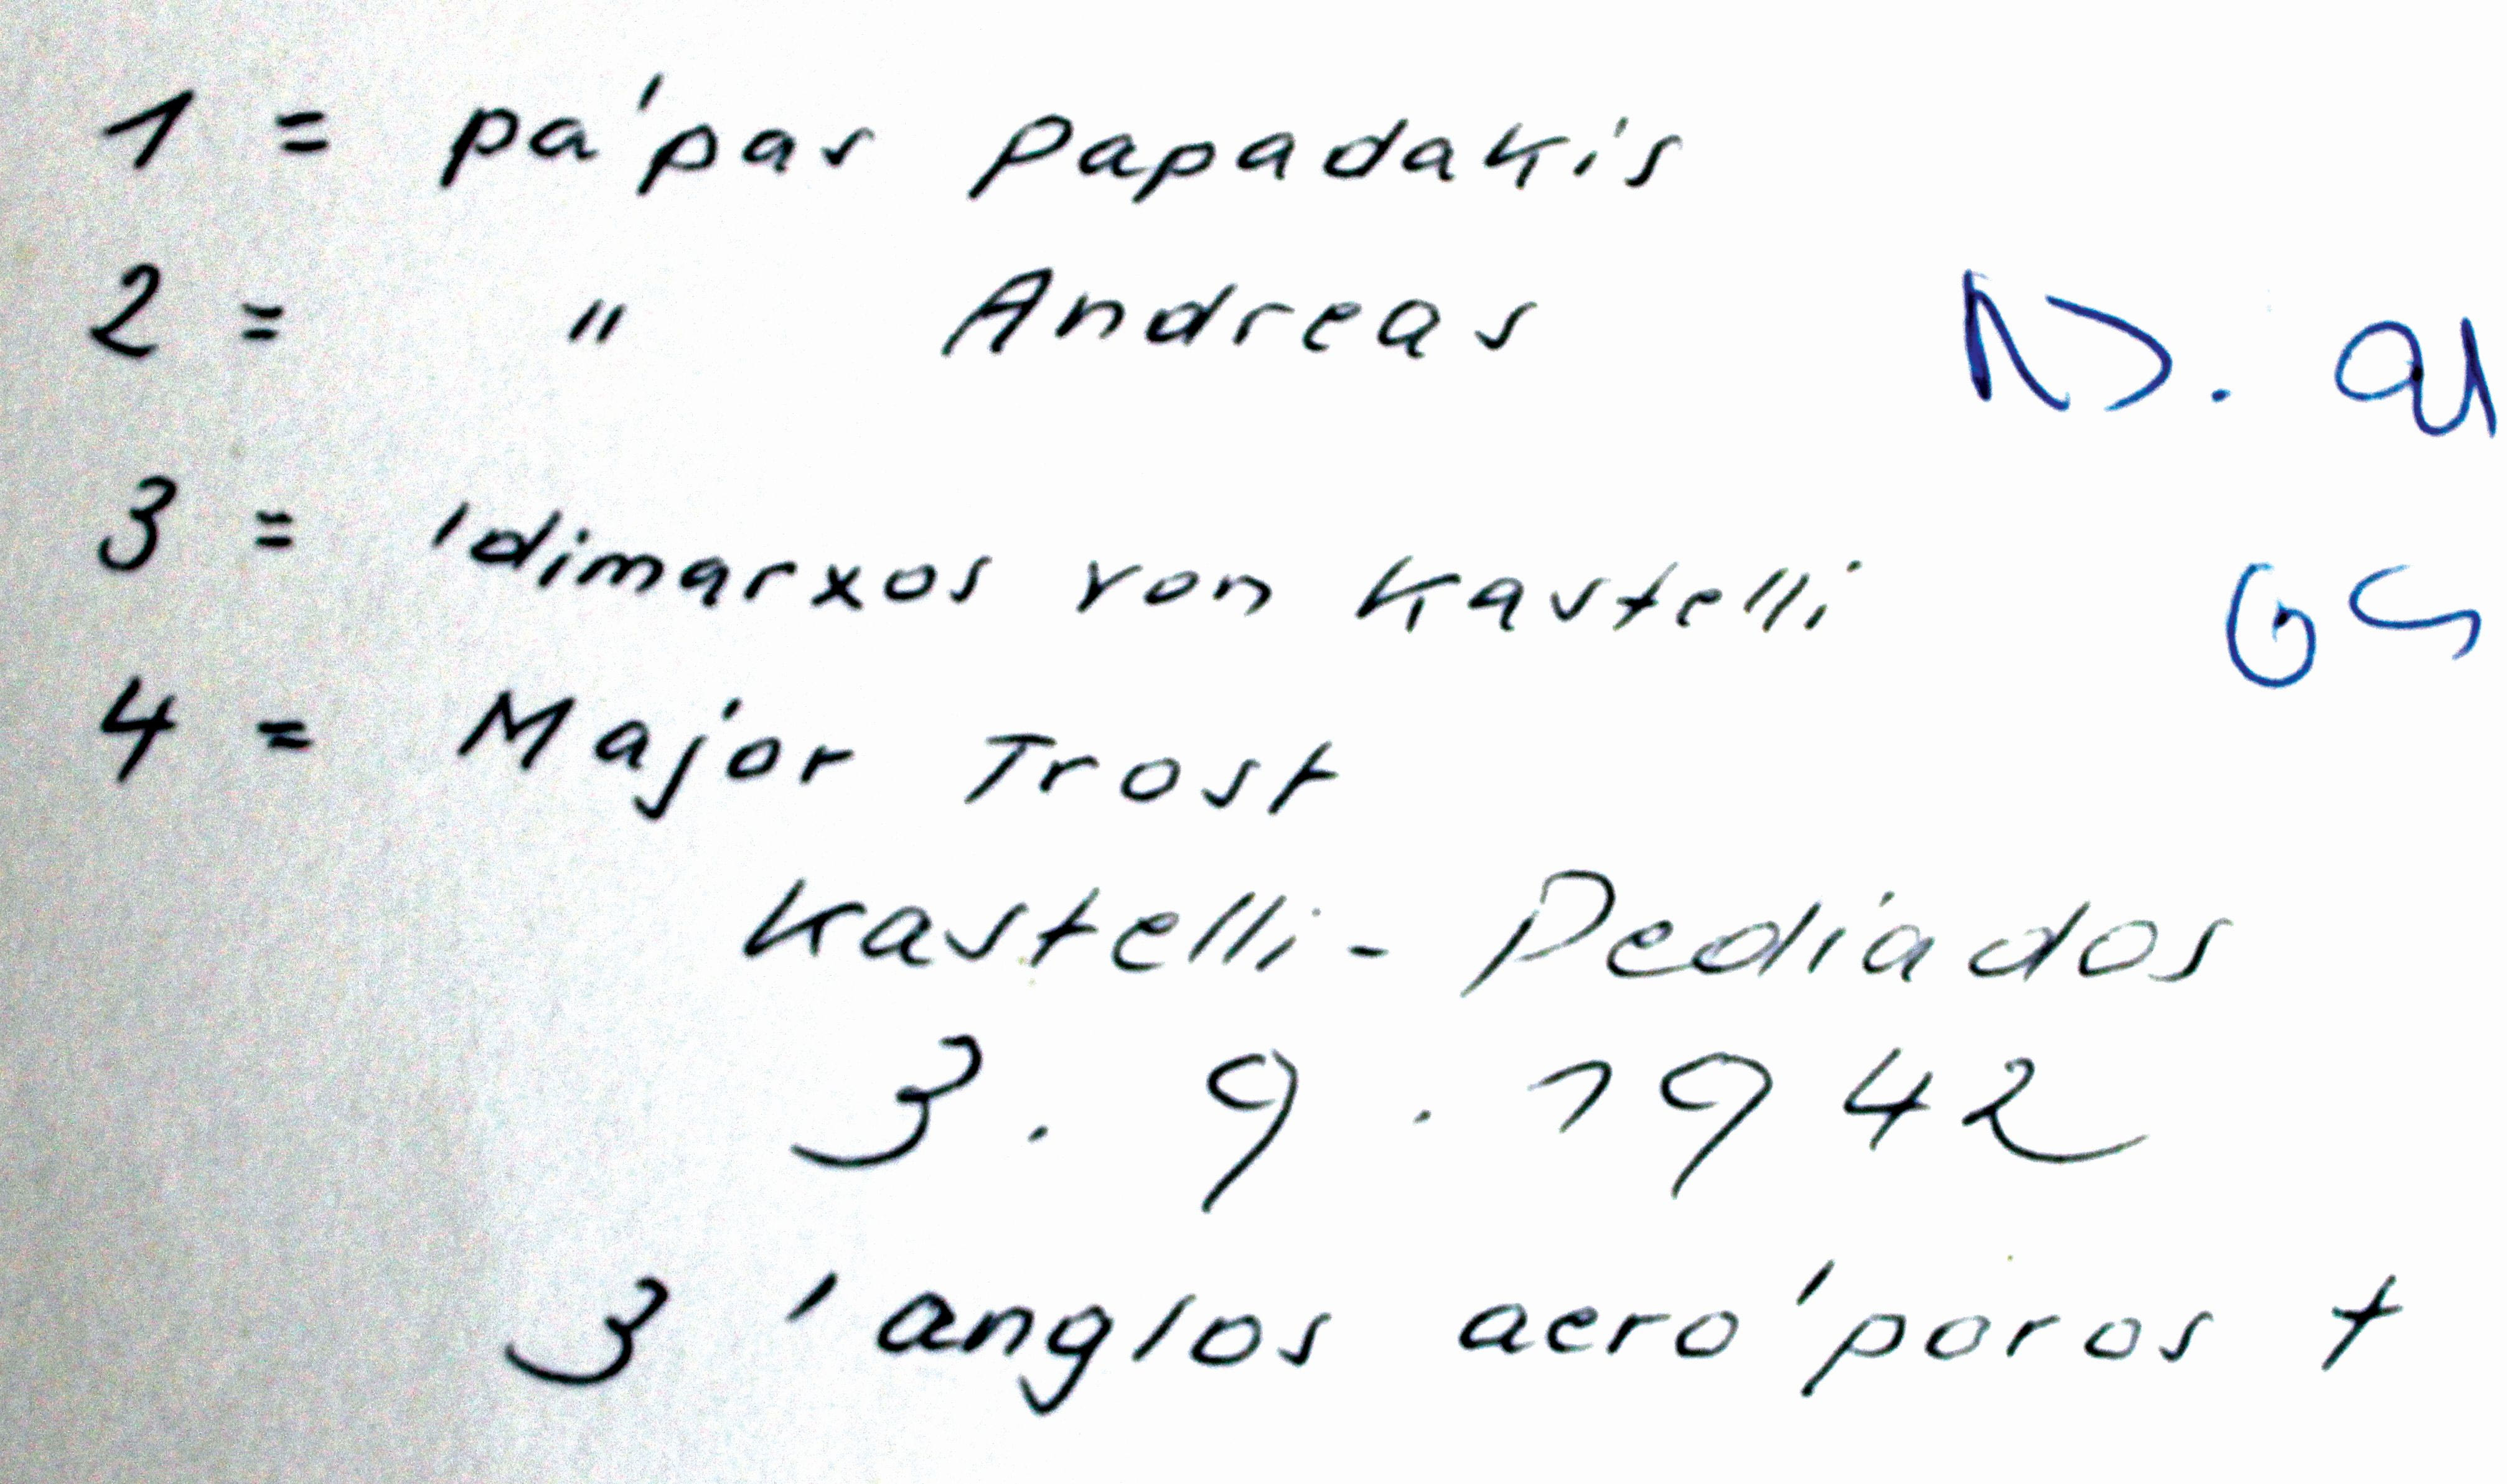 1 = pa'pas Papadakis
2 = " Andreas
3 = 'dimarxos von Kastelli
4 = Major Trost
Kastelli - Pediados
3. 9. 1942
3 'anglos aero'poros †